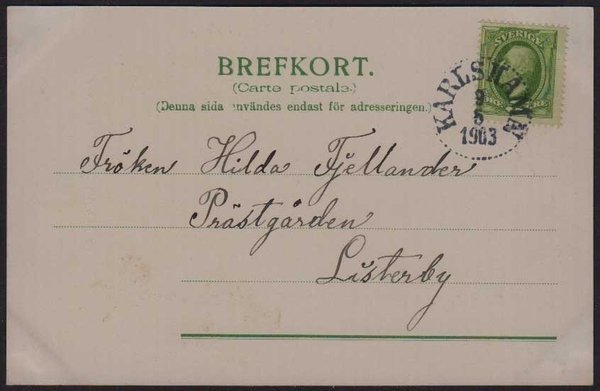 SVERIGE
BREFKORT.
(Carte postale.)
(Denna sida användes endast för adresseringen.)
KARLSHAMN
5
1903
Fröken Hilda Fjellander
Prästgården
Listerby